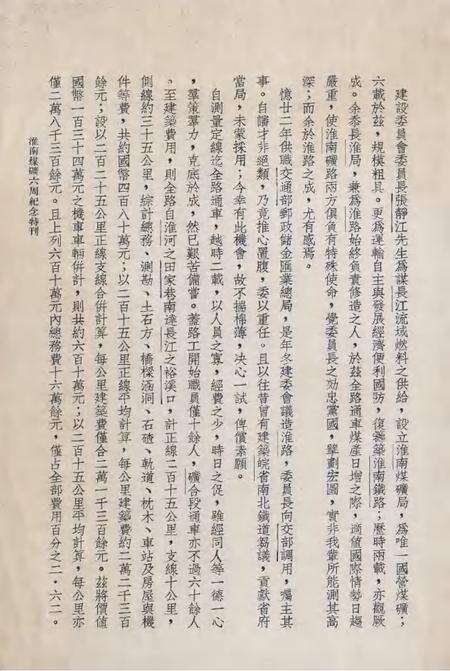 建設委員會委員長張靜江先生爲謀長江流域燃料之供給，設立淮南煤礦局，爲唯一國營煤礦；
六載於茲，規模粗具。更爲運輸自主與發展經濟便利國防，復籌築淮南鐵路；歷時兩載，亦觀厥
成。余忝長淮局，兼爲淮路始終負責修造之人，於茲全路通車煤產日增之際，適値國際情勢日趨
嚴重，使淮南礦路兩方俱負有特殊使命，覺委員長之効忠黨國，擘劃宏圖，實非我輩所能測其高
深；而余於淮路之成，尤有感焉。
憶廿二年供職交通部郵政儲金匯業總局，是年冬建委會議造淮路，委員長向交部調用，囑主其
事。自譾才非絕類，乃竟推心置腹，委以重任，且以往昔曾有建築皖省南北鐵道芻議，貢獻省府
當局，未蒙採用；今幸有此機會，故不揣棉薄，决心一試，俾償素願。
自測量定線迄全路通車，越時二載，以人員之寡，經費之少，時日之促，雖經同人等一德一心
，羣策羣力，克底於成，然已艱苦備嘗。蓋路工開始職員僅十餘人，礦合段通車亦不過六十餘人
。至建築費用，則全路自淮河之田家巷南達長江之裕溪口，計正線二百十五公里，支線十公里，
側線約三十五公里，綜計總務、測勘、土石方、橋樑涵洞、石碴、軌道、枕木、車站及房屋與機
件等費，共約國幣四百八十萬元；以二百十五公里正線平均計算，每公里建築費約二萬二千三百
餘元；設以二百二十五公里正線支線合併計算，每公里建築費僅合二萬一千三百餘元。茲將價值
國幣一百三十四萬元之機車車輛併計，則共約六百十萬元；以二百十五公里平均計算，每公里亦
僅二萬八千三百餘元。且上列六百十萬元內總務費十六萬餘元，僅占全部費用百分之二．六二。
淮南煤礦六周紀念特刊